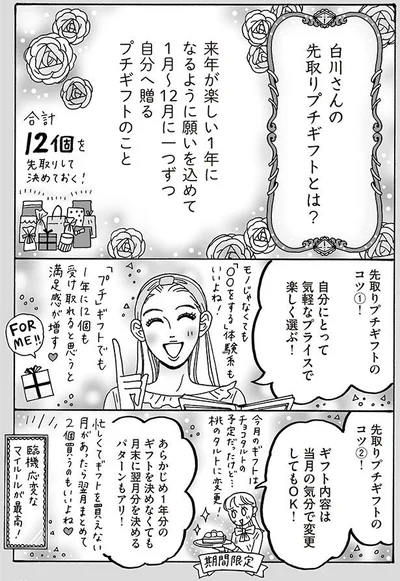 白川さんの
先取りプチギフトとは？
来年が楽しい1年に
なるように願いを込めて
1月〜12月に一つずつ
自分へ贈る
プチギフトのこと
合計
12個を
先取りして
決めておく！
先取りプチギフトの
コツ①！
自分にとって
気軽なプライスで
楽しく選ぶ！
モノじゃなくても
「〇〇をする」体験系も
いいよね！
「プチギフト」でも
1年に12個も
受け取れると思うと
満足感が増す♡
FOR
ME!!
先取りプチギフトの
コツ②！
ギフト内容は
当月の気分で変更
してもOK！
今月のギフトは
チョコタルトの
予定だったけど…
桃のタルトに変更！
期間限定
あらかじめ1年分の
ギフトを決めなくても
月末に翌月分を決める
パターンもアリ！
忙しくてギフトを買えない
月があったら翌月まとめて
2個買うのもいいよね♡
臨機応変な
マイルールが最高！